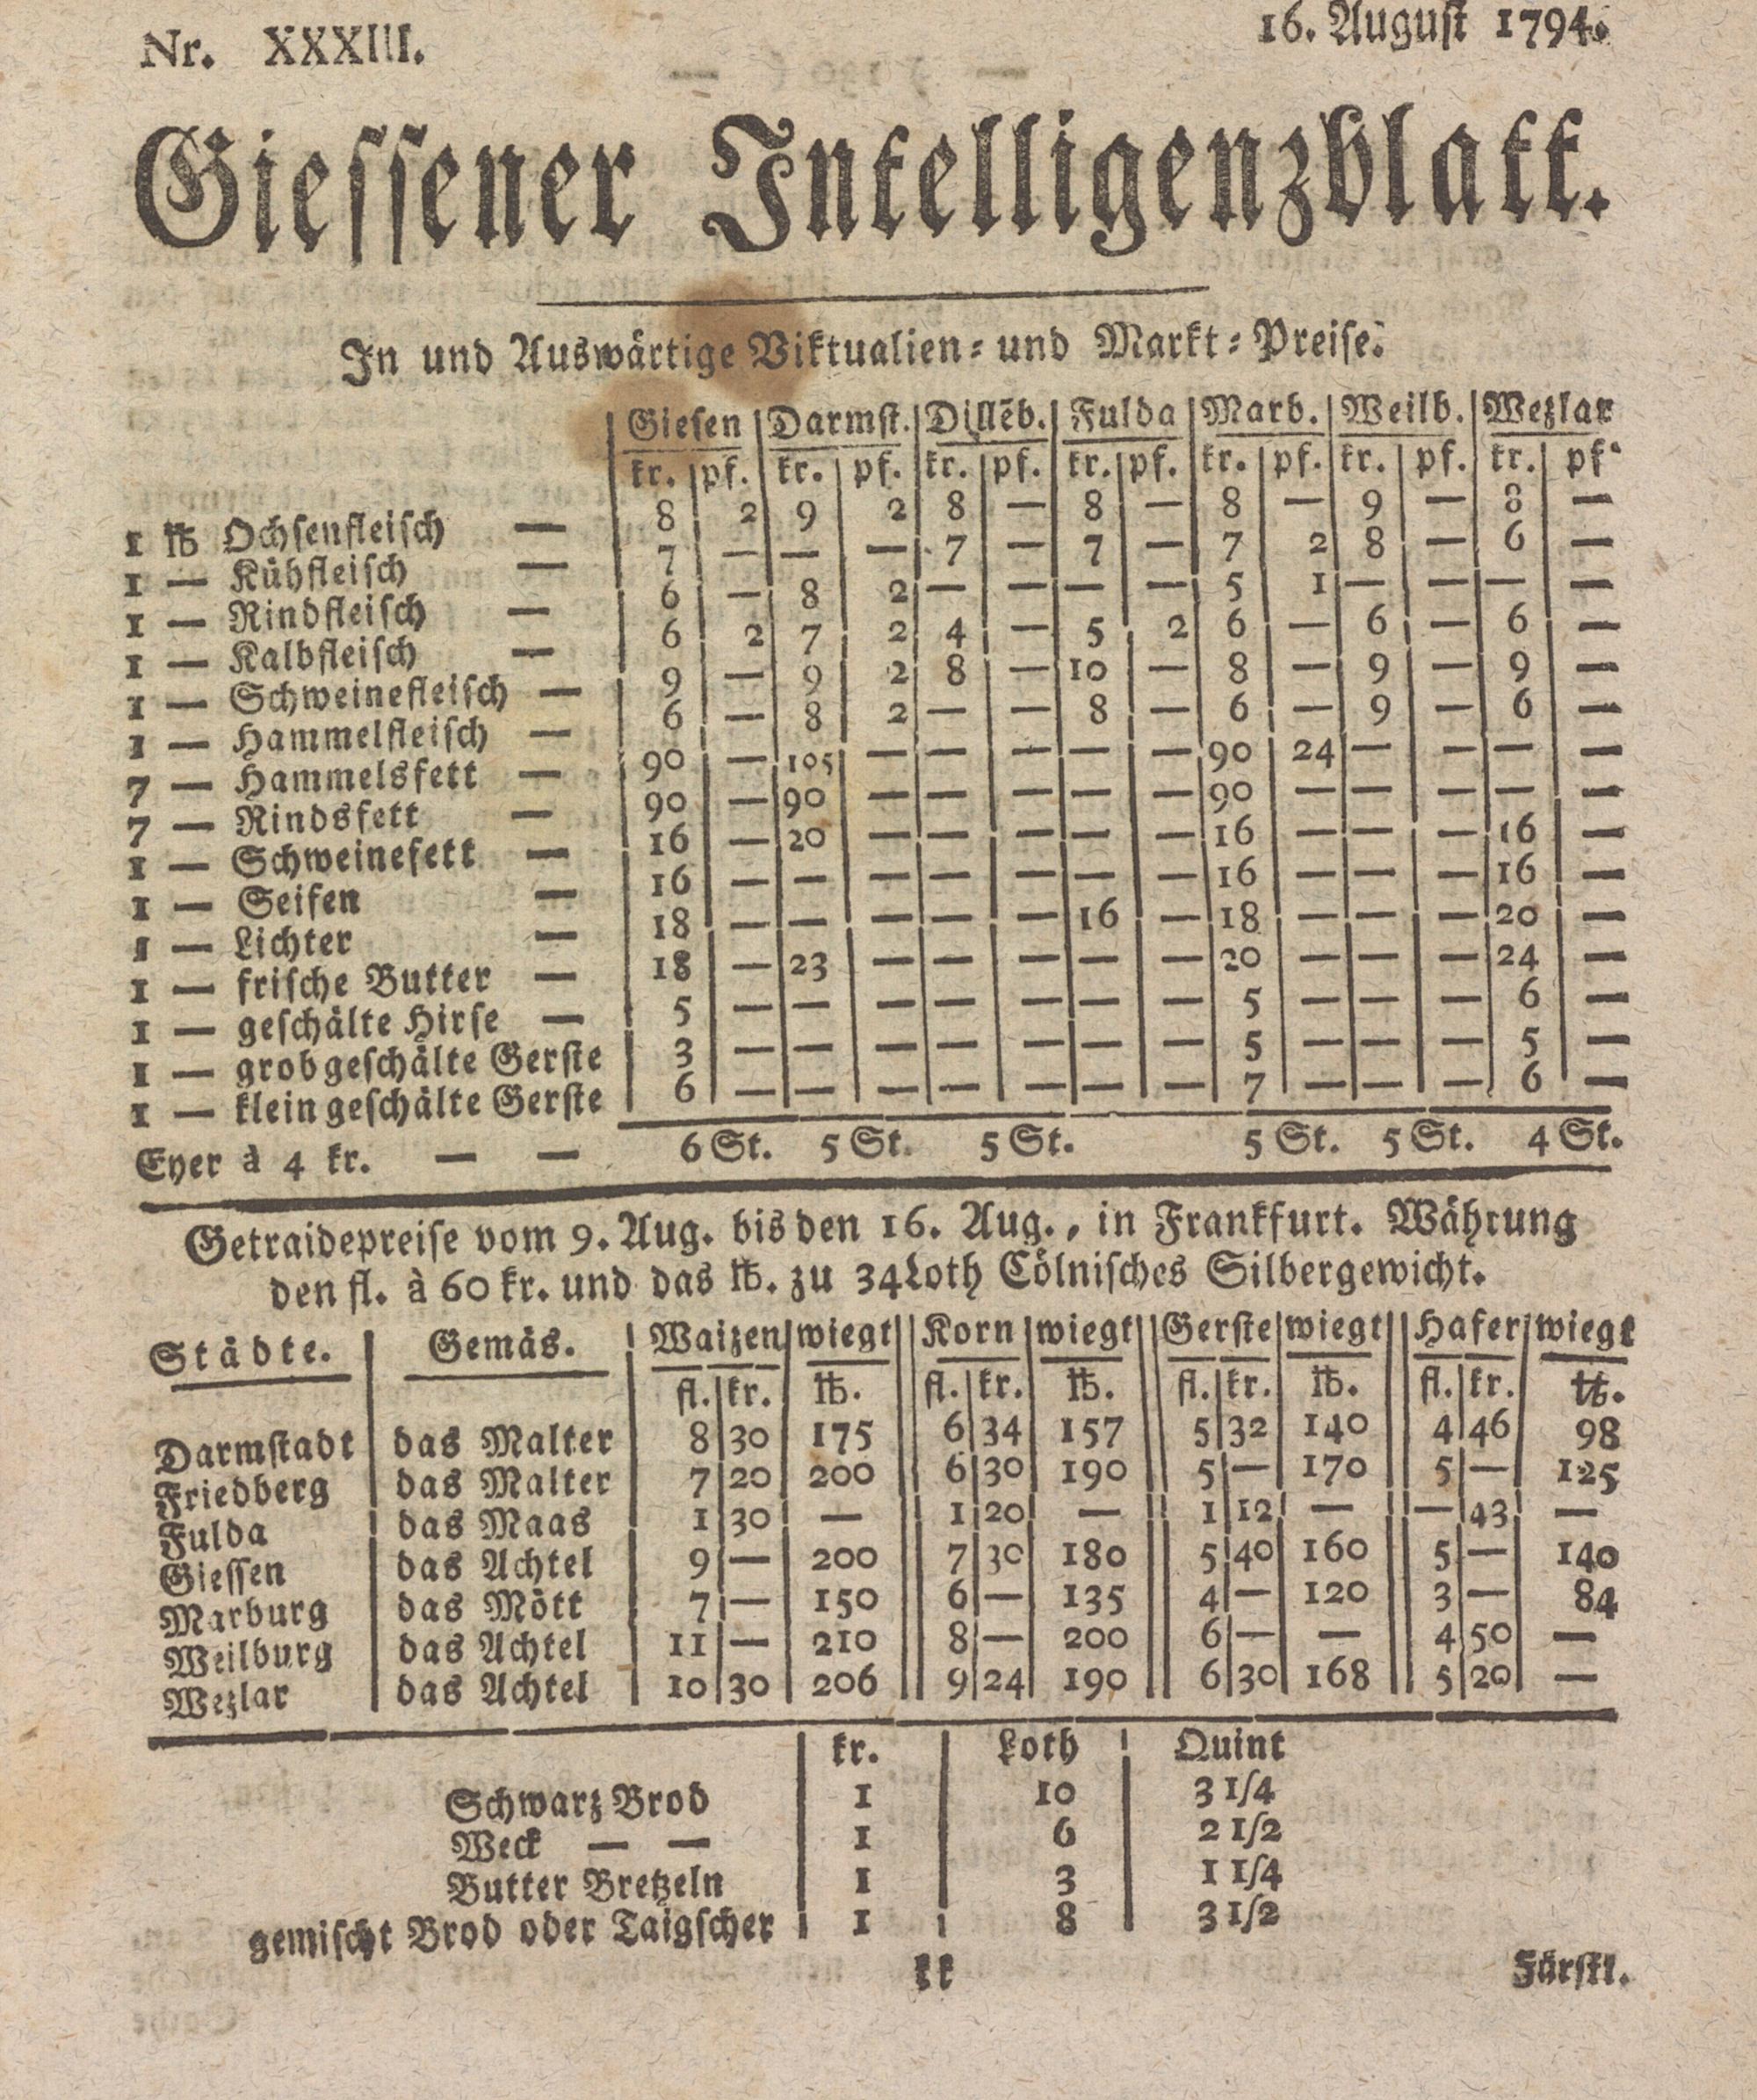 Nr. XXXIII. 16. Auguſt 1794.
Gieſſener Intelligenzblatt.
In und Auswärtige Viktualien- und Markt-Preiſe.
Gieſen | Darmſt. | Dillēb. | Fulda | Marb. | Weilb. | Wezlar
kr. | pf. | kr. | pf. | kr. | pf. | kr. | pf. | kr. | pf. | kr. | pf. | kr. | pf.
1 ℔ Ochſenfleiſch — | 8 | 2 | 9 | 2 | 8 | — | 8 | — | 8 | — | 9 | — | 8 | —
1 — Kühfleiſch — | 7 | — | — | — | 7 | — | 7 | — | 7 | 2 | 8 | — | 6 | —
1 — Rindfleiſch — | 6 | — | 8 | 2 | — | — | — | — | 5 | 1 | — | — | — | —
1 — Kalbfleiſch — | 6 | 2 | 7 | 2 | 4 | — | 5 | 2 | 6 | — | 6 | — | 6 | —
1 — Schweinefleiſch — | 9 | — | 9 | 2 | 8 | — | 10 | — | 8 | — | 9 | — | 9 | —
1 — Hammelfleiſch — | 6 | — | 8 | 2 | — | — | 8 | — | 6 | — | 9 | — | 6 | —
7 — Hammelsfett — | 90 | — | 105 | — | — | — | — | — | 90 | 24 | — | — | — | —
7 — Rindsfett — | 90 | — | 90 | — | — | — | — | — | 90 | — | — | — | — | —
1 — Schweinefett — | 16 | — | 20 | — | — | — | — | — | 16 | — | — | — | 16 | —
1 — Seifen — | 16 | — | — | — | — | — | — | — | 16 | — | — | — | 16 | —
1 — Lichter — | 18 | — | — | — | — | — | 16 | — | 18 | — | — | — | 20 | —
1 — friſche Butter — | 18 | — | 23 | — | — | — | — | — | 20 | — | — | — | 24 | —
1 — geſchälte Hirſe — | 5 | — | — | — | — | — | — | — | 5 | — | — | — | 6 | —
1 — grob geſchälte Gerſte | 3 | — | — | — | — | — | — | — | 5 | — | — | — | 5 | —
1 — klein geſchälte Gerſte | 6 | — | — | — | — | — | — | — | 7 | — | — | — | 6 | —
Eyer à 4 kr. — — 6 St. 5 St. 5 St. 5 St. 5 St. 4 St.
Getraidepreiſe vom 9. Aug. bis den 16. Aug., in Frankfurt. Währung
den fl. à 60 kr. und das ℔. zu 34 Loth Cölniſches Silbergewicht.
Städte. | Gemäs. | Waizen | wiegt || Korn | wiegt || Gerſte | wiegt || Hafer | wiegt
fl. | kr. | ℔. || fl. | kr. | ℔. || fl. | kr. | ℔. || fl. | kr. | ℔.
Darmſtadt | das Malter | 8 | 30 | 175 || 6 | 34 | 157 || 5 | 32 | 140 || 4 | 46 | 98
Friedberg | das Malter | 7 | 20 | 200 || 6 | 30 | 190 || 5 | — | 170 || 5 | — | 125
Fulda | das Maas | 1 | 30 | — || 1 | 20 | — || 1 | 12 | — || — | 43 | —
Gieſſen | das Achtel | 9 | — | 200 || 7 | 30 | 180 || 5 | 40 | 160 || 5 | — | 140
Marburg | das Mött | 7 | — | 150 || 6 | — | 135 || 4 | — | 120 || 3 | — | 84
Weilburg | das Achtel | 11 | — | 210 || 8 | — | 200 || 6 | — | — || 4 | 50 | —
Wezlar | das Achtel | 10 | 30 | 206 || 9 | 24 | 190 || 6 | 30 | 168 || 5 | 20 | —
kr. | Loth | Quint
Schwarz Brod | 1 | 10 | 3 1/4
Weck — — | 1 | 6 | 2 1/2
Butter Bretzeln | 1 | 3 | 1 1/4
gemiſcht Brod oder Taigſcher | 1 | 8 | 3 1/2
kk Fürſtl.